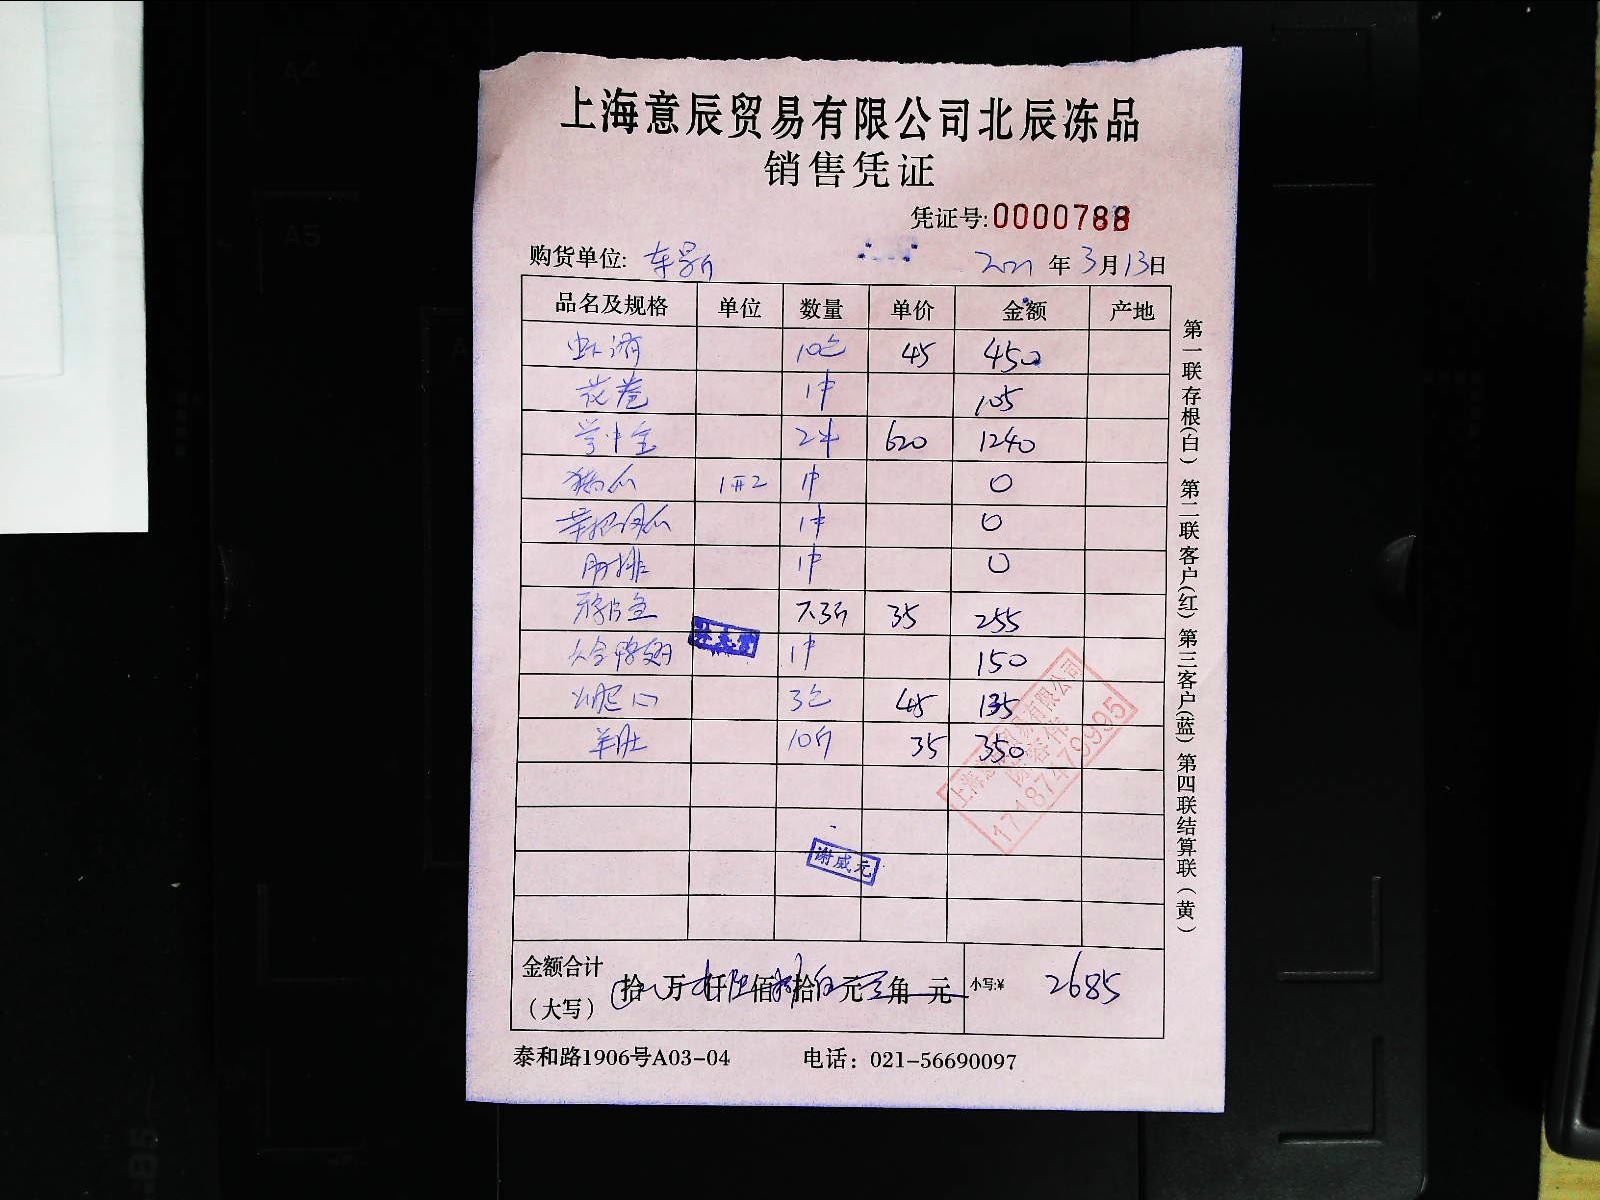 上海意辰贸易有限公司北辰冻品
销售凭证
凭证号:0000788
购货单位: 车 2021年3月13日
品名及规格 单位 数量 单价 金额 产地
虾滑 10包 45 450
花卷 1件 105
2件 620 1240
1件 0
凤爪 1件 0
肋排 1件 0
7.3斤 35 255
鸭翅 1件 150
3包 45 135
羊肚 10斤 35 350
金额合计
(大写) 拾 万 仟 佰 拾 元 角 元 小写:¥ 2685
泰和路1906号A03-04 电话: 021-56690097
第一联存根(白) 第二联客户(红) 第三客户(蓝) 第四联结算联(黄)
谢威元
17187479995